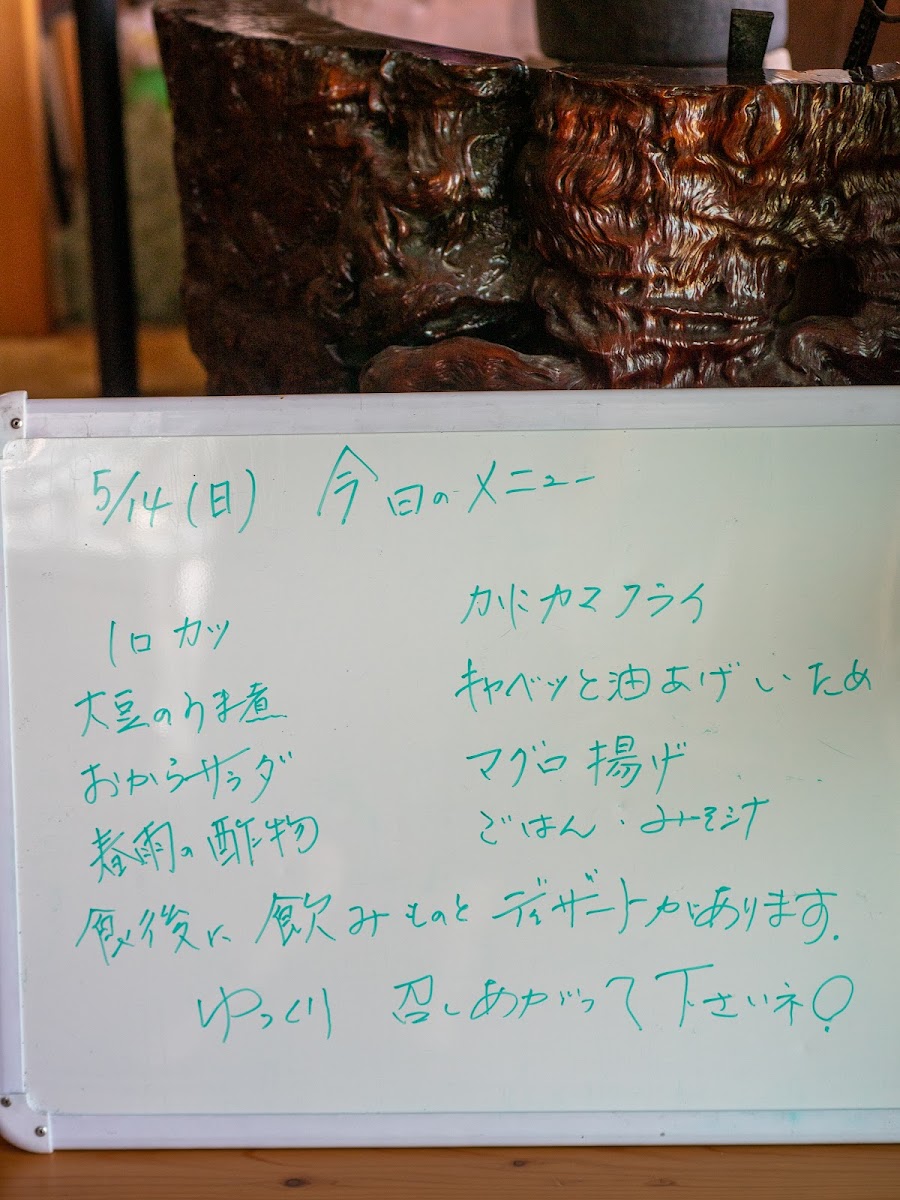 5/14(日) 今日のメニュー
1口カツ
大豆のうま煮
おからサラダ
春雨の酢物
かにカマフライ
キャベツと油あげいため
マグロ揚げ
ごはん・みそ汁
食後に飲みものとディザートがあります.
ゆっくり 召しあがって下さいネ♡